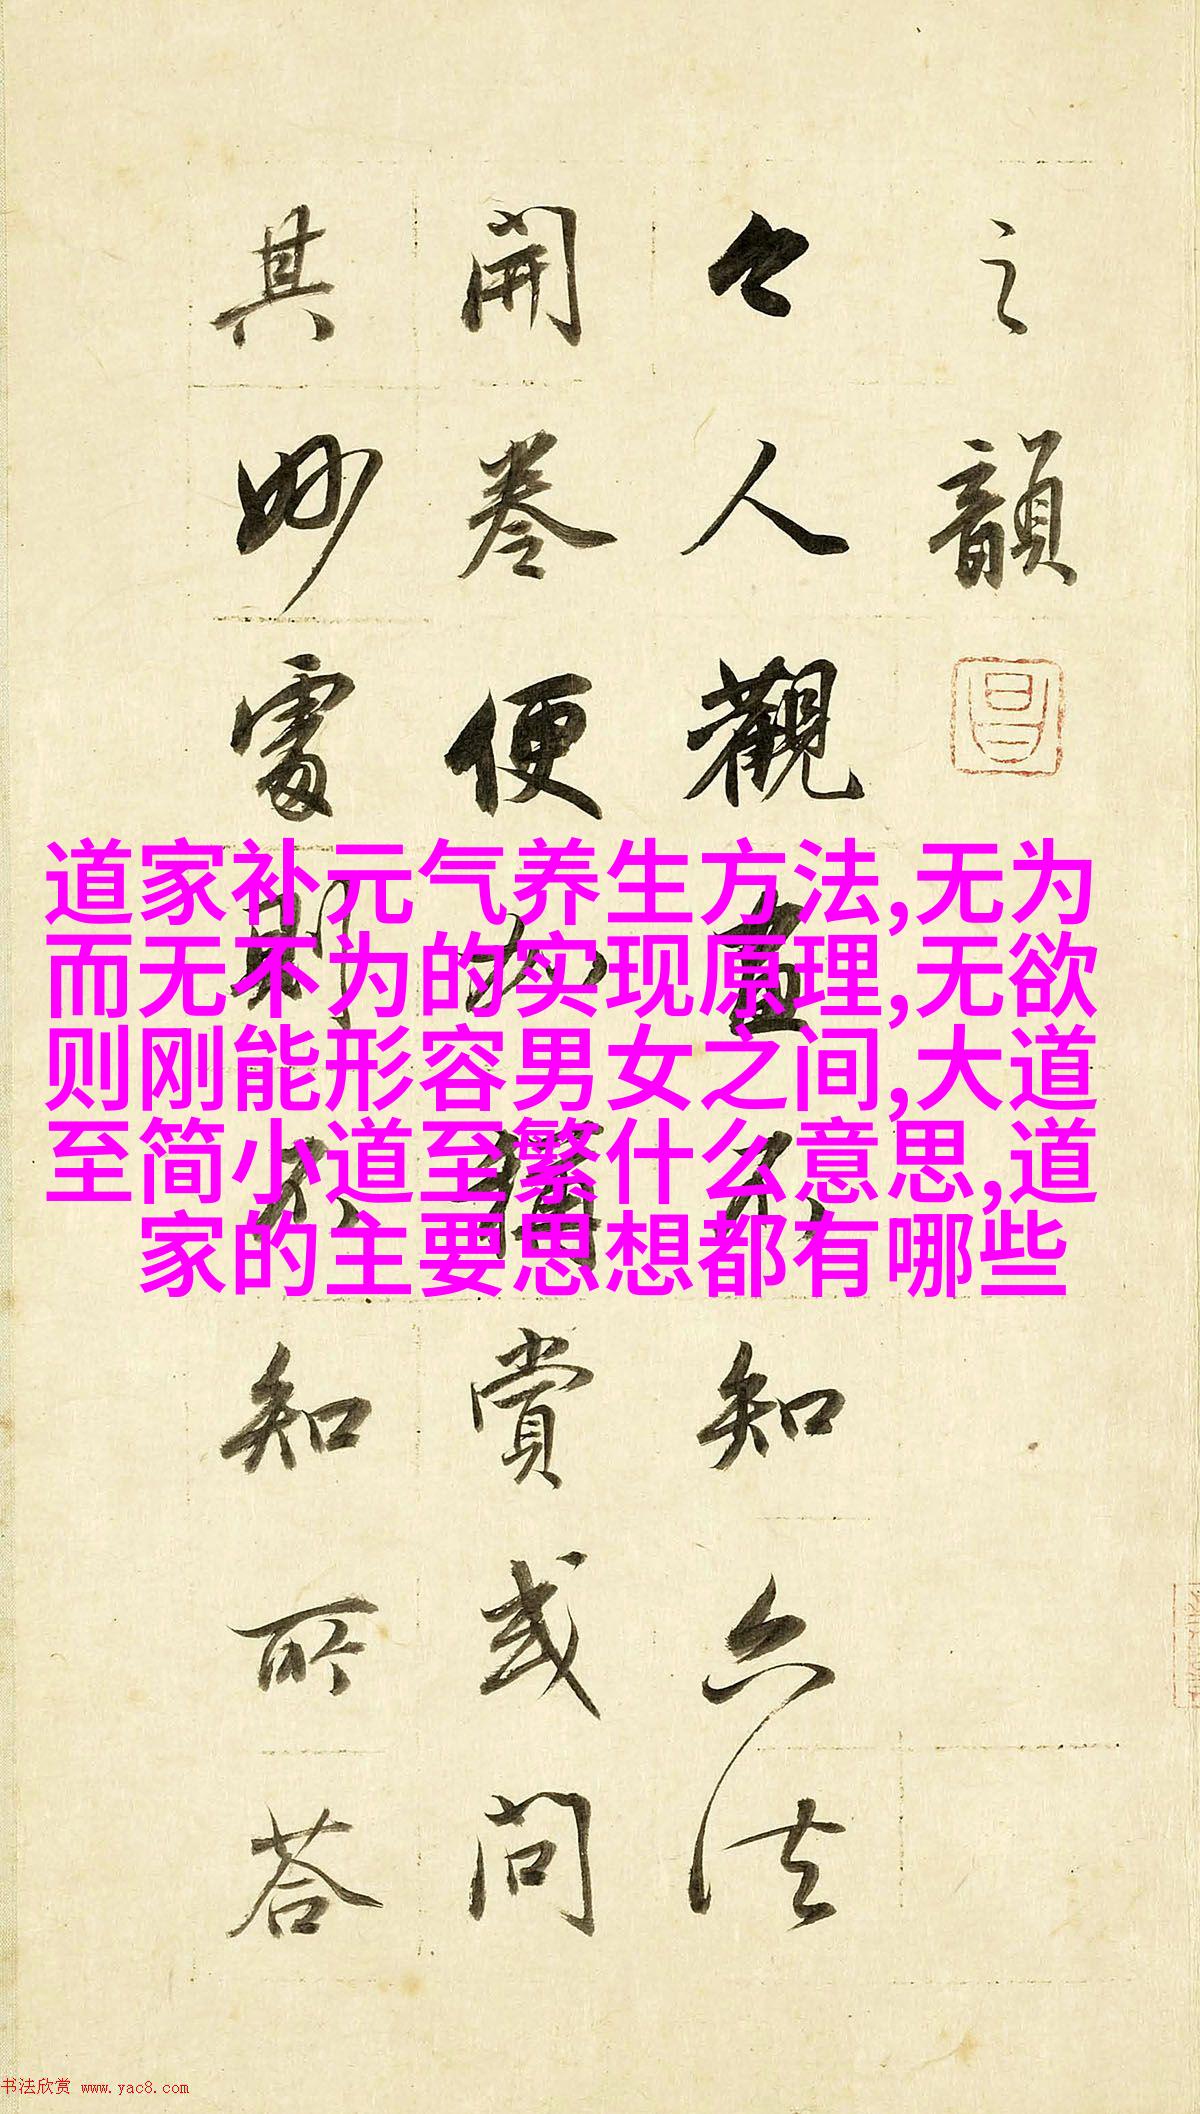 之韻
昌
今人觀畫不知六法
開卷便加稱賞或問
其妙處則不知所答
道家补元气养生方法,无为
而无不为的实现原理,无欲
则刚能形容男女之间,大道
至简小道至繁什么意思,道
家的主要思想都有哪些
书法欣赏 www.yac8.com